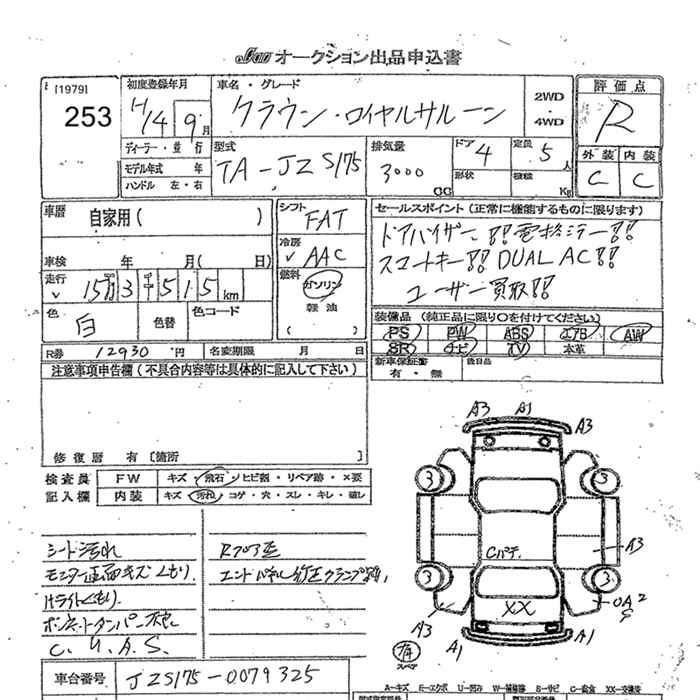 Jaa オークション出品申込書
[1979]
253
初度登録年月
H14 9月
車名・グレード
クラウン・ロイヤルサルーン
2WD
4WD
評価点
R
ディーラー・並行
モデル年式 年
ハンドル 左・右
型式
TA-JZS175
排気量
3000
CC
ドア 4
定員 5人
形状
積載
Kg
外装 内装
C C
車歴
自家用( )
車検 年 月( 日)
走行
15万3千515km
色
白
色替
色コード
シフト
FAT
冷房
AAC
燃料
ガソリン
軽油
( )
セールスポイント(正常に機能するものに限ります)
ドアバイザー!! 電格ミラー!!
スマートキー!! DUAL AC!!
ユーザー買取!!
装備品(純正品に限り○を付けてください)
PS PW ABS エアB AW
SR ナビ TV 本革
R券 12930円
名変期限 月 日
新車保証書
有・無
後日品
注意事項申告欄(不具合内容等は具体的に記入して下さい)
修復歴 有〔箇所
検査員
記入欄
FW キズ・飛石・ヒビ割・リペア跡・×要
内装 キズ・汚れ・コゲ・穴・スレ・キレ・破レ
シート汚れ
モニター画面キズくもり、
Hライトくもり、
C.U.A.S.
エンドパネル修正クランプ跡、
A3 A1 A3
3 3
Cパテ
A3
3 3
XX
A3
A1 A1
スペア
車台番号 JZS175-0079325